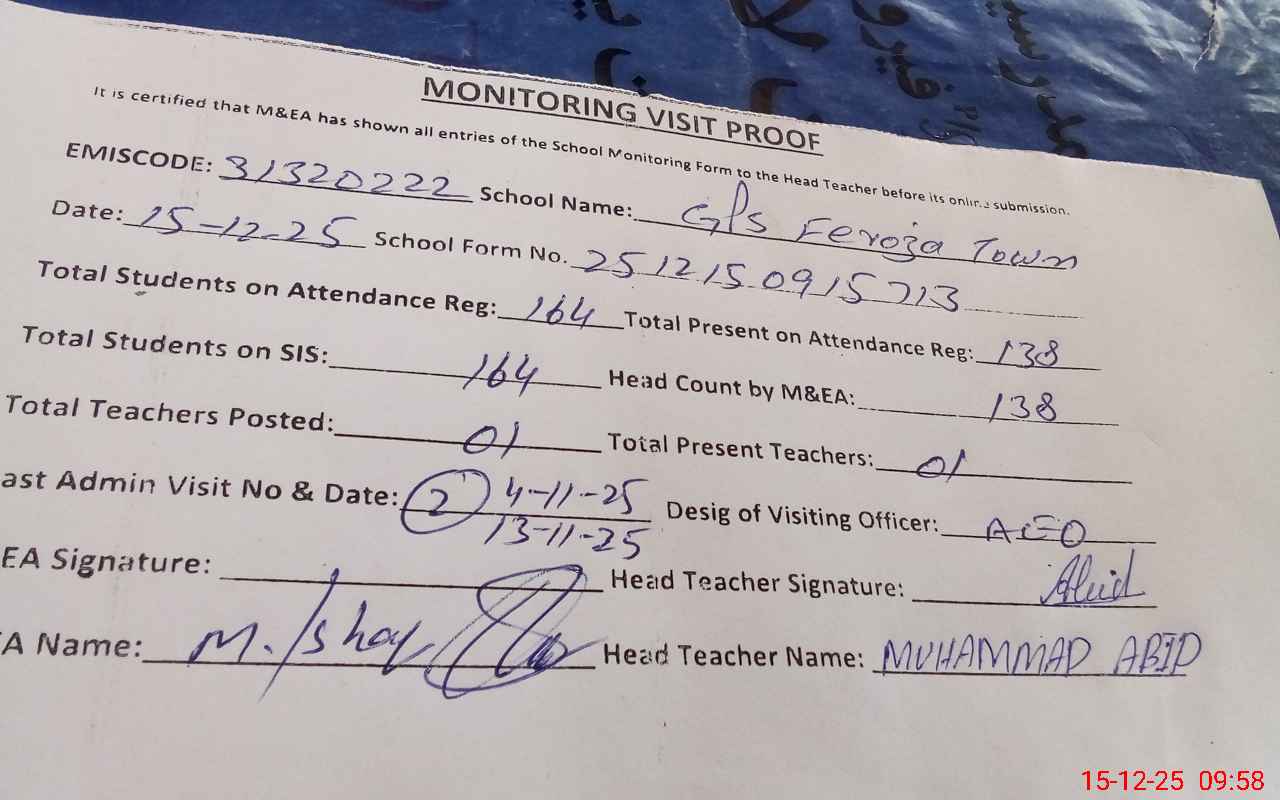 MONITORING VISIT PROOF
It is certified that M&EA has shown all entries of the School Monitoring Form to the Head Teacher before its online submission.
EMISCODE: 31320222 School Name: GPS Feroza Town
Date: 15-12-25 School Form No. 2512150915713
Total Students on Attendance Reg: 164 Total Present on Attendance Reg: 138
Total Students on SIS: 164 Head Count by M&EA: 138
Total Teachers Posted: 01 Total Present Teachers: 01
ast Admin Visit No & Date: 2 4-11-25 13-11-25 Desig of Visiting Officer: AEO
EA Signature: Head Teacher Signature: Abid
A Name: M. Ishaq Head Teacher Name: MUHAMMAD ABID
15-12-25 09:58